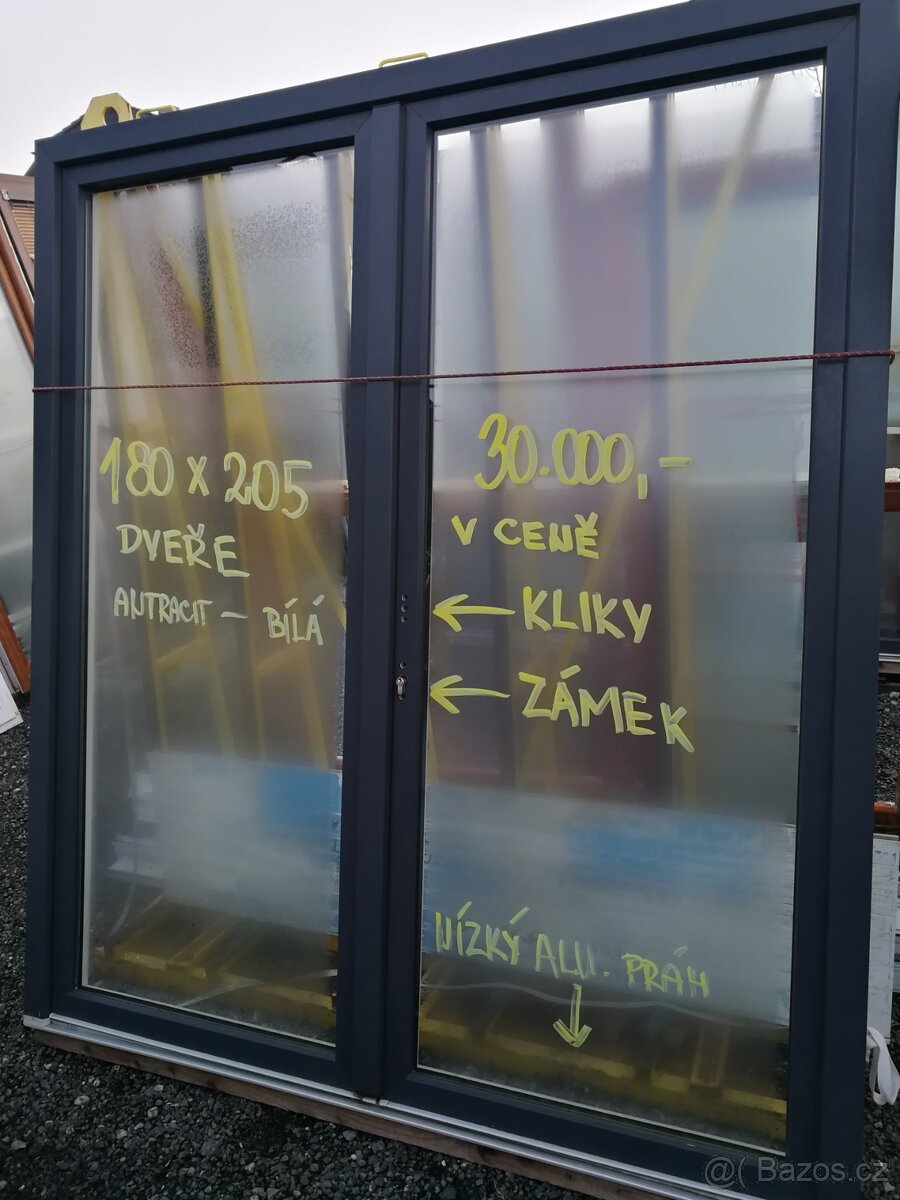 180 x 205
DVEŘE
ANTRACIT – BÍLÁ
30.000,-
V CENĚ
← KLIKY
← ZÁMEK
NÍZKÝ ALU. PRÁH
↓
@( Bazos.cz